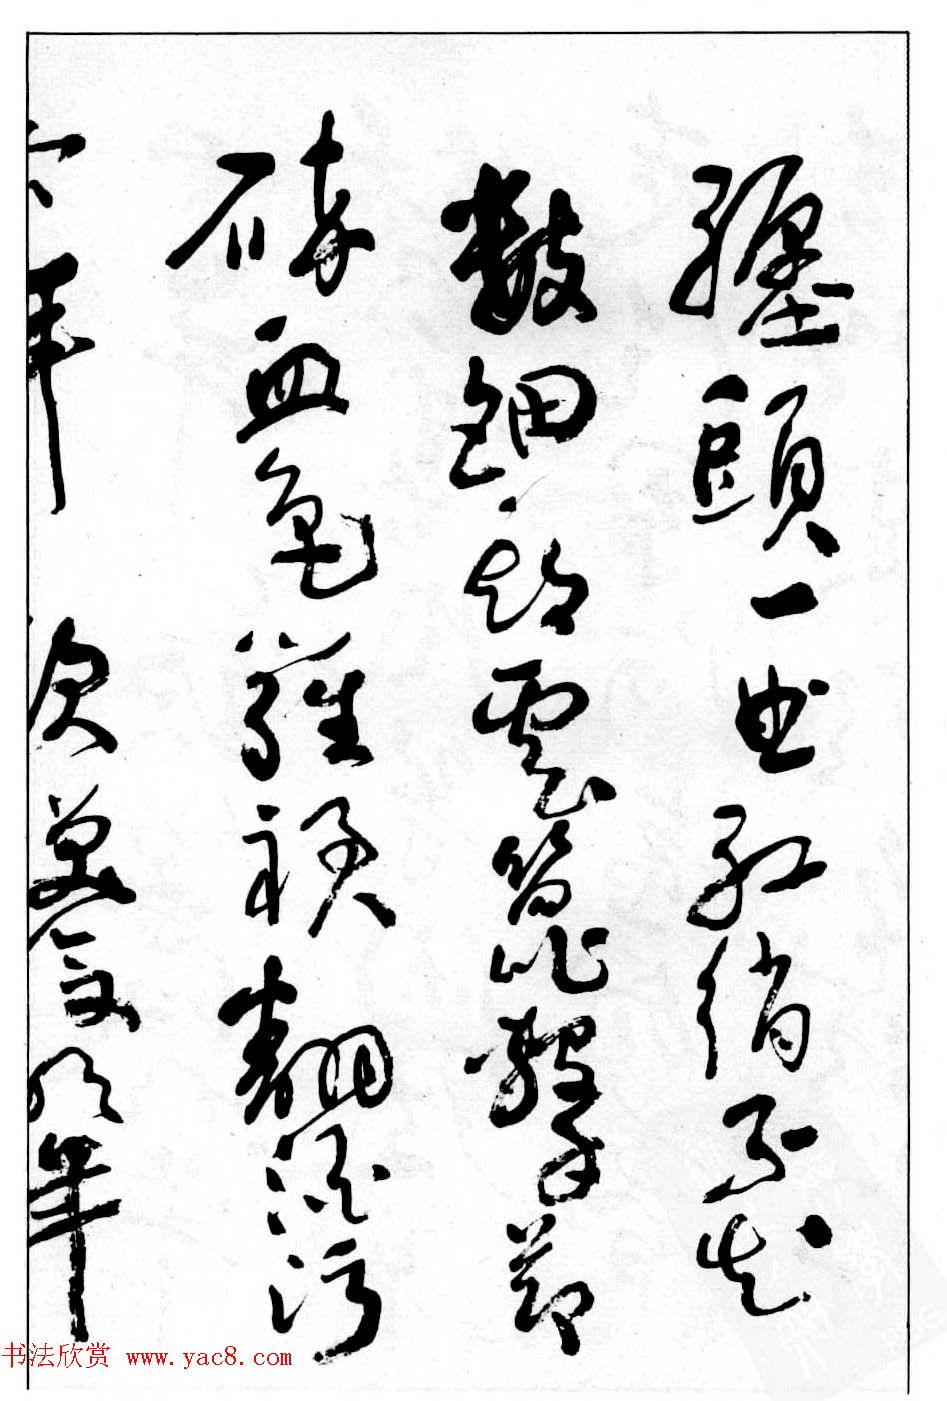 纏頭一曲紅綃不知
數鈿頭雲篦擊節
碎血色羅裙翻酒污
今年歡笑復明年
书法欣赏 www.yac8.com